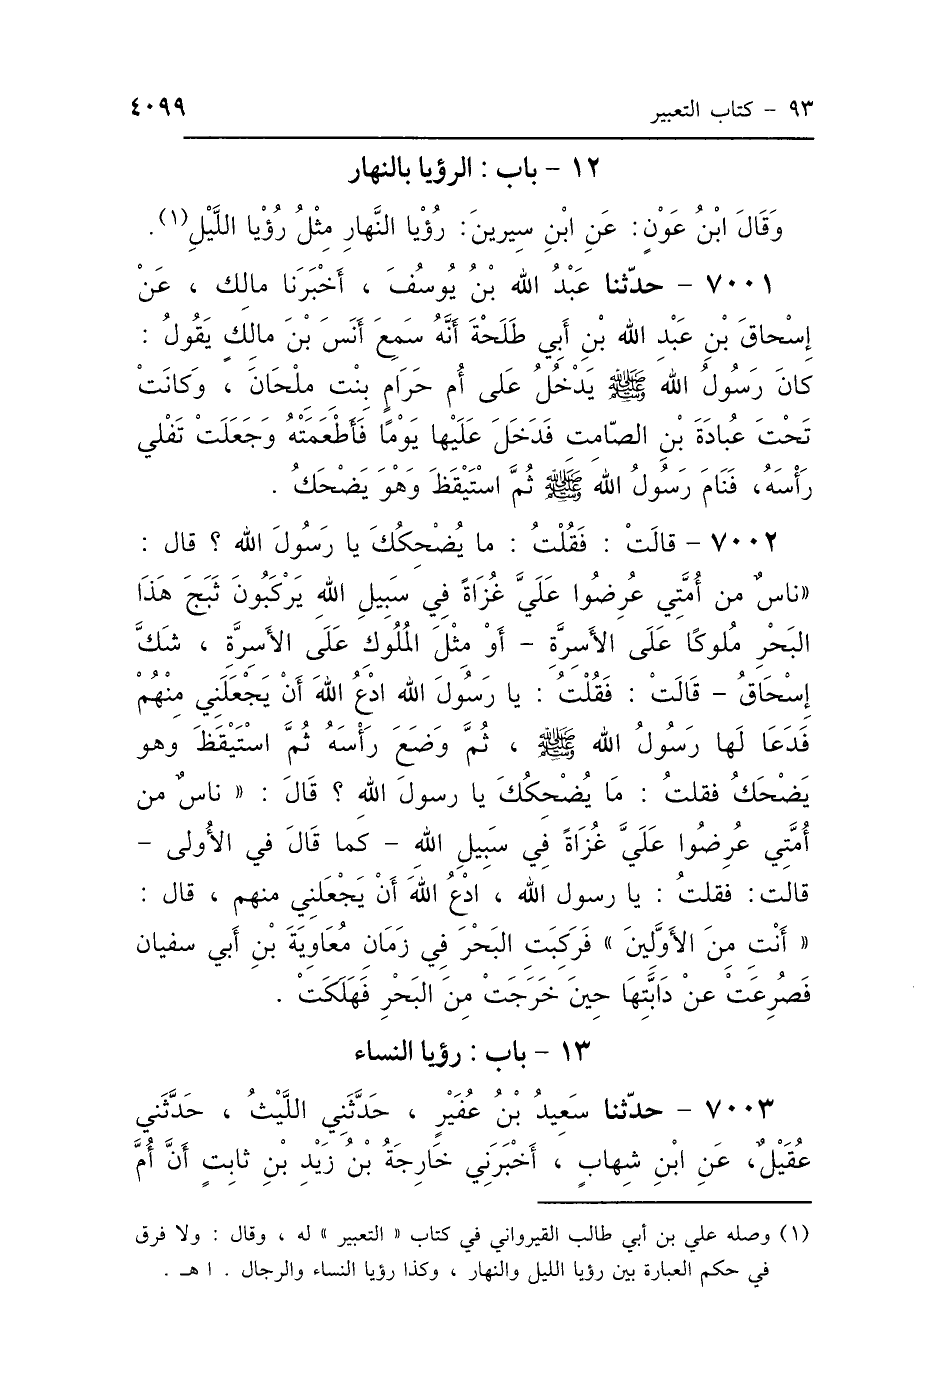 ٩٣ – كتاب التعبير ٤٠٩٩
١٢ – باب : الرؤيا بالنهار
وَقَالَ ابْنُ عَوْنٍ: عَنِ ابْنِ سِيرِينَ: رُؤْيا النَّهارِ مِثْلُ رُؤْيا اللَّيْلِ(١).
٧٠٠١ – حدّثنا عَبْدُ الله بْنُ يُوسُفَ ، أَخْبَرَنا مالك ، عَنْ
إِسْحاقَ بْنِ عَبْدِ الله بْنِ أَبي طَلْحَةَ أَنَّهُ سَمِعَ أَنَسَ بْنَ مالِكٍ يَقُولُ :
كانَ رَسُولُ الله ﷺ يَدْخُلُ عَلى أُم حَرَامٍ بِنْتِ مِلْحَانَ ، وَكانَتْ
تَحْتَ عُبادَةَ بْنِ الصّامِتِ فَدَخَلَ عَلَيْها يَوْمًا فَأَطْعَمَتْهُ وَجَعَلَتْ تَفْلي
رَأْسَهُ، فَنَامَ رَسُولُ الله ﷺ ثُمَّ اسْتَيْقَظَ وَهْوَ يَضْحَكُ .
٧٠٠٢ – قالَتْ : فَقُلْتُ : ما يُضْحِكُكَ يا رَسُولَ الله ؟ قال :
«ناسٌ من أُمَّتي عُرِضُوا عَلَيَّ غُزَاةً في سَبِيلِ اللهِ يَرْكَبُونَ ثَبَجَ هَذَا
البَحْرِ مُلُوكًا عَلَى الأَسِرَّةِ – أَوْ مِثْلَ المُلُوكِ عَلَى الأسِرَّةِ ، شَكَّ
إِسْحَاقُ – قَالَتْ : فَقُلْتُ : يا رَسُولَ الله ادْعُ اللهَ أَنْ يَجْعَلَني مِنْهُمْ
فَدَعَا لَها رَسُولُ الله ﷺ ، ثُمَّ وَضَعَ رَأْسَهُ ثُمَّ اسْتَيْقَظَ وهو
يَضْحَكُ فقلتُ : مَا يُضْحِكُكَ يا رسولَ الله ؟ قَالَ : « ناسٌ من
أُمَّتي عُرِضُوا عَلَيَّ غُزَاةً في سَبِيلِ الله – كما قَالَ في الأُولى –
قالت: فقلتُ : يا رسول الله ، ادْعُ اللهَ أَنْ يَجْعَلني منهم ، قال :
« أَنْتِ مِنَ الأَوَّلِينَ » فَرَكِبَتِ البَحْرَ في زَمَانِ مُعَاوِيَةَ بْنِ أَبي سفيان
فَصُرِعَتْ عَنْ دَابَّتِهَا حِينَ خَرَجَتْ مِنَ البَحْرِ فَهَلَكَتْ .
١٣ – باب : رؤيا النساء
٧٠٠٣ – حدّثنا سَعِيدُ بْنُ عُفَيْرٍ ، حَدَّثَنِي اللَّيْثُ ، حَدَّثَني
عُقَيْلٌ، عَنِ ابْنِ شِهابٍ ، أَخْبَرَنِي خَارِجَةُ بْنُ زَيْدِ بْنِ ثابِتٍ أَنَّ أُمَّ
(١) وصله علي بن أبي طالب القيرواني في كتاب « التعبير » له ، وقال : ولا فرق
في حكم العبارة بين رؤيا الليل والنهار ، وكذا رؤيا النساء والرجال . ا هـ .